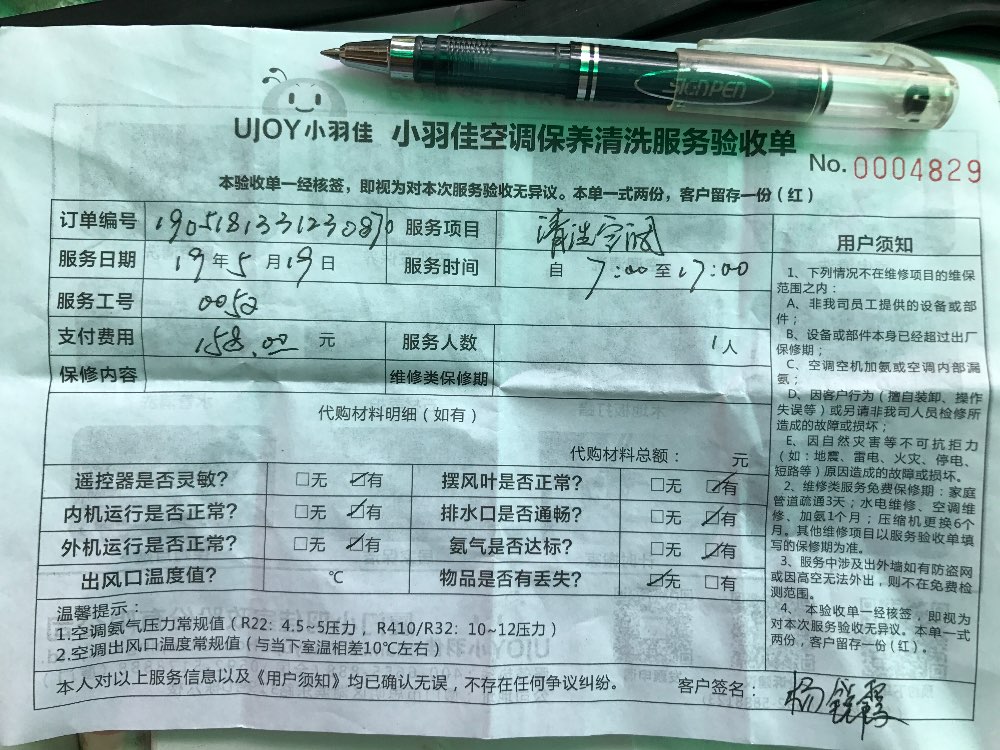 SIGNPEN
UJOY小羽佳 小羽佳空调保养清洗服务验收单
No. 0004829
本验收单一经核签，即视为对本次服务验收无异议。本单一式两份，客户留存一份（红）
订单编号 1905181331230870 服务项目 清洗空调
服务日期 19年5月19日 服务时间 自7:00至17:00
服务工号 0052
支付费用 158.00 元 服务人数 1人
保修内容 维修类保修期
代购材料明细（如有）
代购材料总额： 元
遥控器是否灵敏？ □无 ☑有 摆风叶是否正常？ □无 ☑有
内机运行是否正常？ □无 ☑有 排水口是否通畅？ □无 ☑有
外机运行是否正常？ □无 ☑有 氨气是否达标？ □无 ☑有
出风口温度值？ ℃ 物品是否有丢失？ ☑无 □有
温馨提示：
1.空调氨气压力常规值（R22：4.5~5压力，R410/R32：10~12压力）
2.空调出风口温度常规值（与当下室温相差10℃左右）
本人对以上服务信息以及《用户须知》均已确认无误，不存在任何争议纠纷。 客户签名：杨锐霞
用户须知
1、下列情况不在维修项目的维保
范围之内：
A、非我司员工提供的设备或部
件；
B、设备或部件本身已经超过出厂
保修期；
C、空调空机加氨或空调内部漏
氨；
D、因客户行为（擅自装卸、操作
失误等）或另请非我司人员检修所
造成的故障或损坏；
E、因自然灾害等不可抗拒力
（如：地震、雷电、火灾、停电、
短路等）原因造成的故障或损坏。
2、维修类服务免费保修期：家庭
管道疏通3天；水电维修、空调维
修、加氨1个月；压缩机更换6个
月。其他维修项目以服务验收单填
写的保修期为准。
3、服务中涉及出外墙如有防盗网
或因高空无法外出，则不在免费检
测范围。
4、本验收单一经核签，即视为
对本次服务验收无异议。本单一式
两份，客户留存一份（红）。